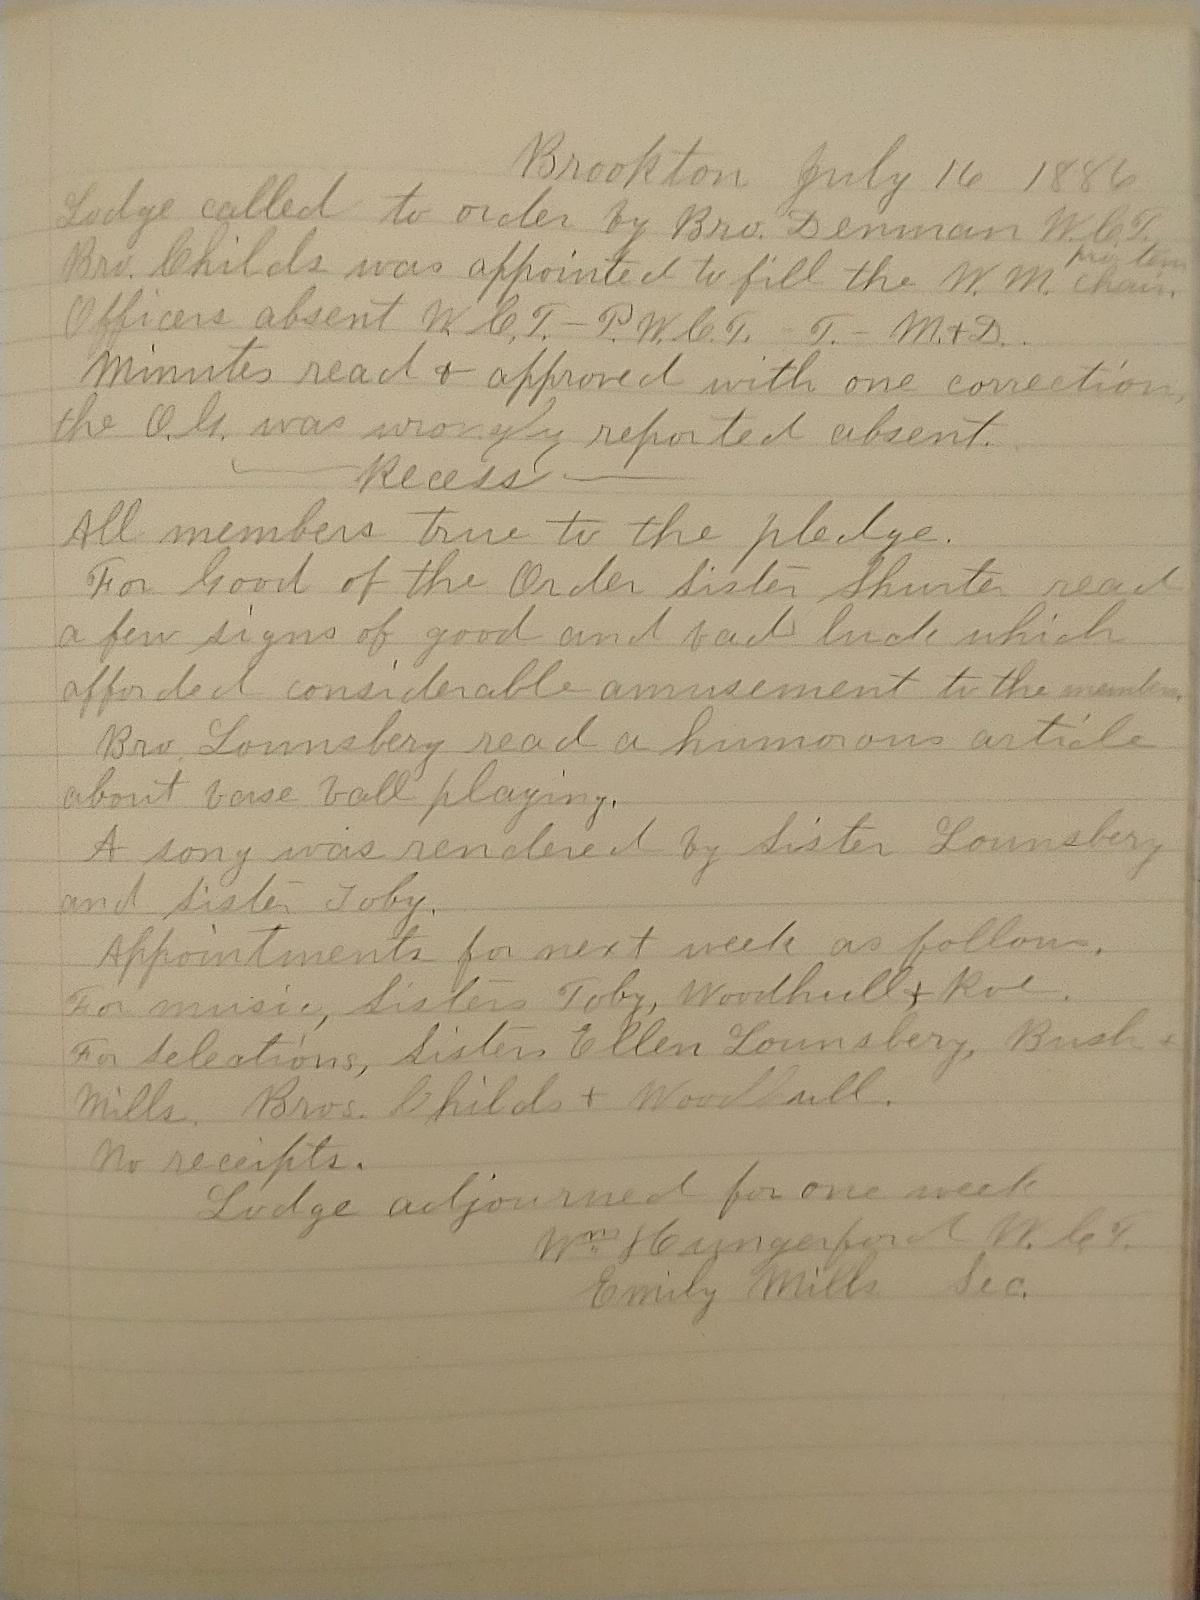 Brookton July 16 1886
Lodge called to order by Bro. Denman W.C.T.
pro tem
Bro. Childs was appointed to fill the W. M. chair.
Officers absent W.C.T. – P.W.C.T. – T. – M. + D.
Minutes read & approved with one correction,
the O.G. was wrongly reported absent.
Recess
All members true to the pledge.
For Good of the Order Sister Shurter read
a few signs of good and bad luck which
afforded considerable amusement to the members.
Bro. Lounsbery read a humorous article
about base ball playing.
A song was rendered by Sister Lounsbery
and Sister Toby.
Appointments for next week as follows.
For music, Sisters Toby, Woodhull + Roe.
For selections, Sisters Ellen Lounsbery, Bush +
Mills. Bros. Childs + Woodhull.
No receipts.
Lodge adjourned for one week
Wm Hungerford W.C.T.
Emily Mills Sec.